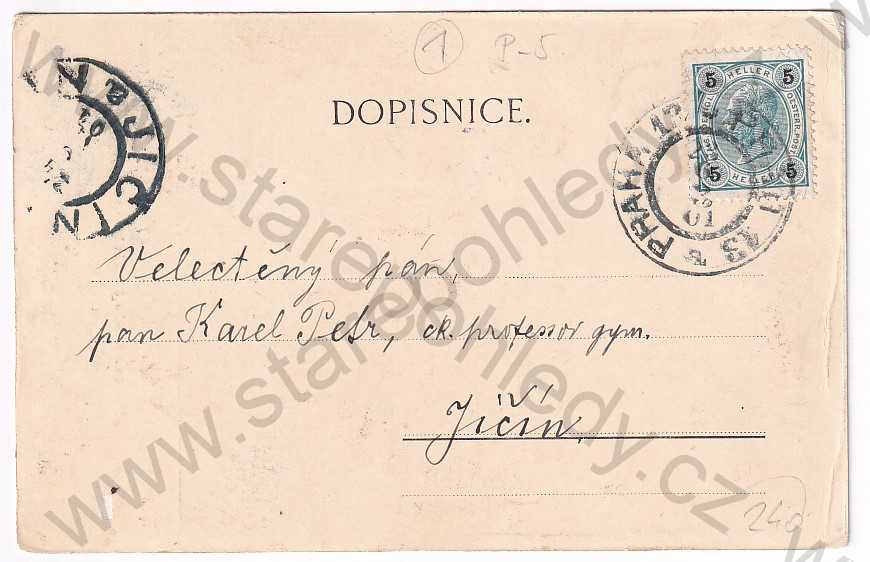 1 P-5
DOPISNICE.
5 HELLER 5
OESTERR. POST
5 HELLER 5
PRAHA
01
JIČÍN
Velectěný pán,
pan Karel Petr, ck. professor gym.
Jičín,
240
www.starepohledy.cz
www.starepohledy.cz